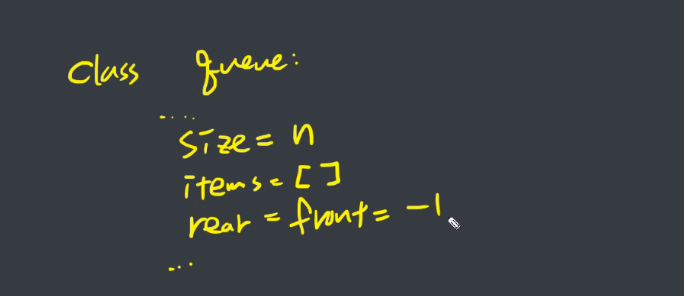 class queue:
....
size = n
items = []
rear = front = -1
...